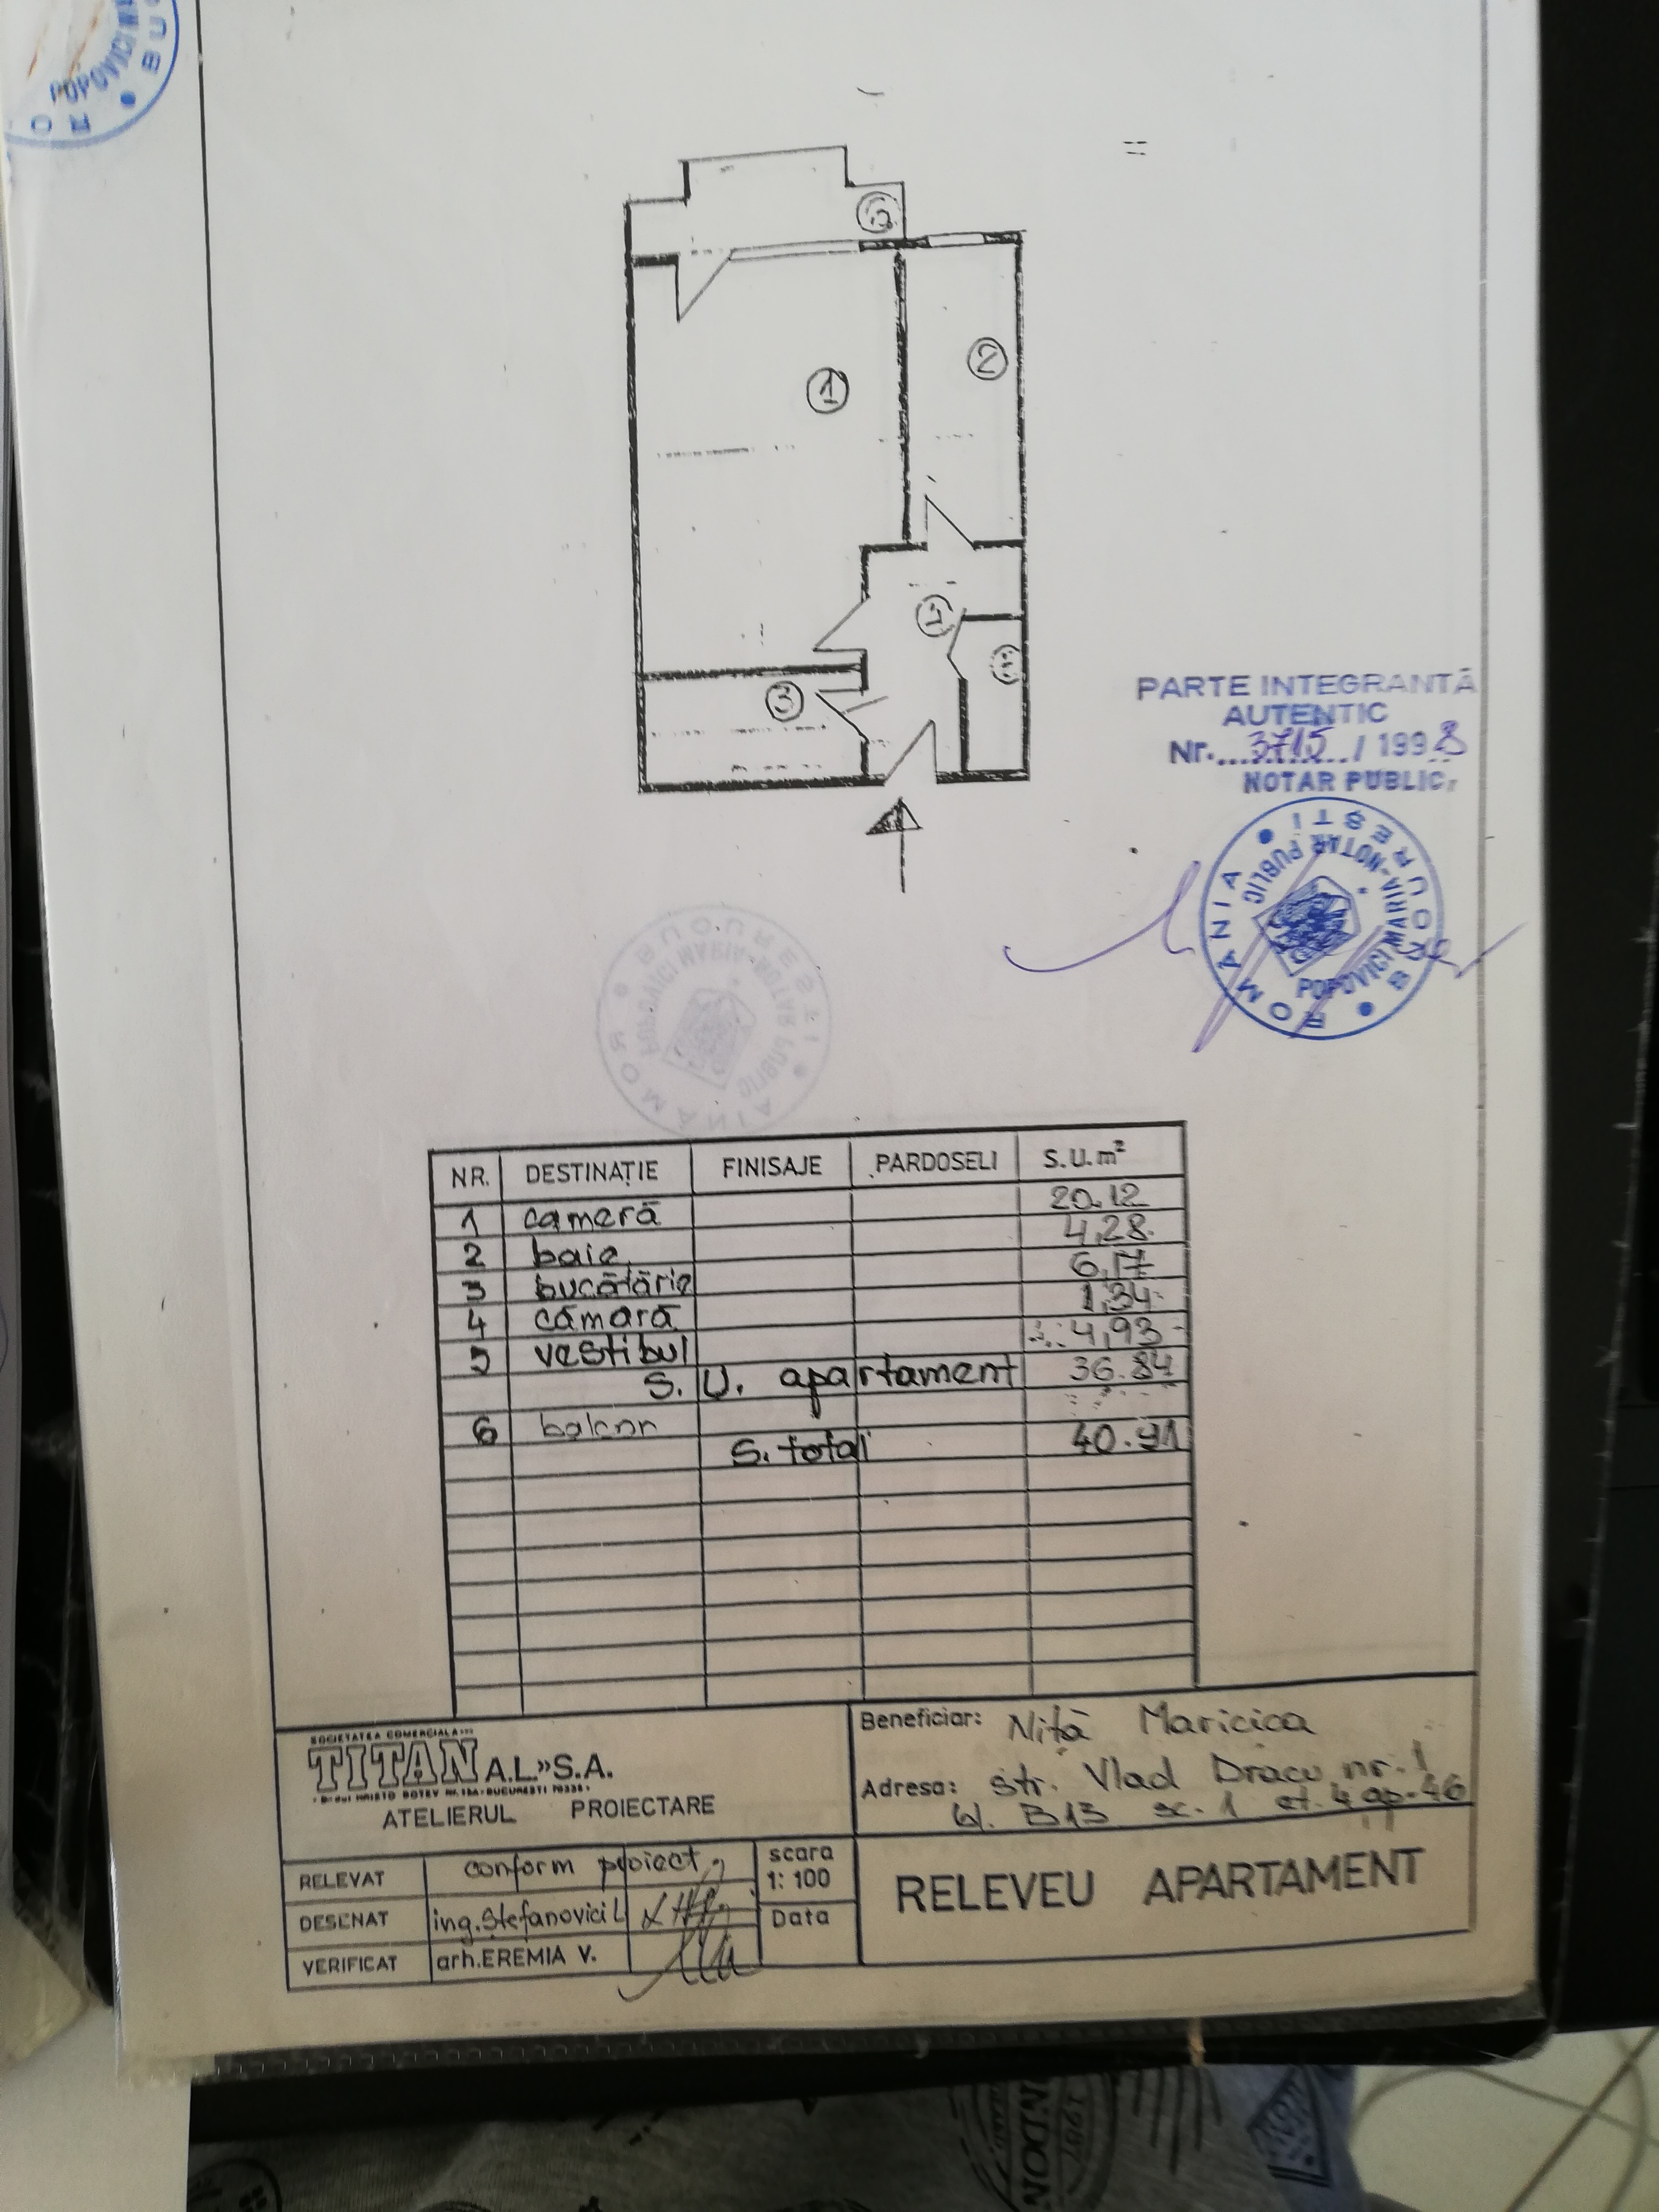 POPOVICI MA
1
2
3
PARTE INTEGRANTĂ
AUTENTIC
Nr. 3715 / 1998
NOTAR PUBLIC
ROMANIA • BUCUREȘTI •
POPOVICI MARIA - NOTAR PUBLIC
NR. DESTINAȚIE FINISAJE PARDOSELI S.U.m²
1 cameră 20.12
2 baie 4,28
3 bucătărie 6,17
4 cămară 1,34
5 vestibul 4,93
S.U. apartament 36.84
6 balcon
S. total 40.91
SOCIETATEA COMERCIALA
TITAN A.L.» S.A.
B-dul HRISTO BOTEV NR. BUCUREȘTI
ATELIERUL PROIECTARE
Beneficiar: Niță Maricica
Adresa: str. Vlad Dracu nr. 1
bl. B13 sc. 1 et. 4 ap. 46
RELEVAT conform proiect
DESENAT ing. Ștefanovici L
VERIFICAT arh. EREMIA V.
scara
1:100
Data
RELEVEU APARTAMENT